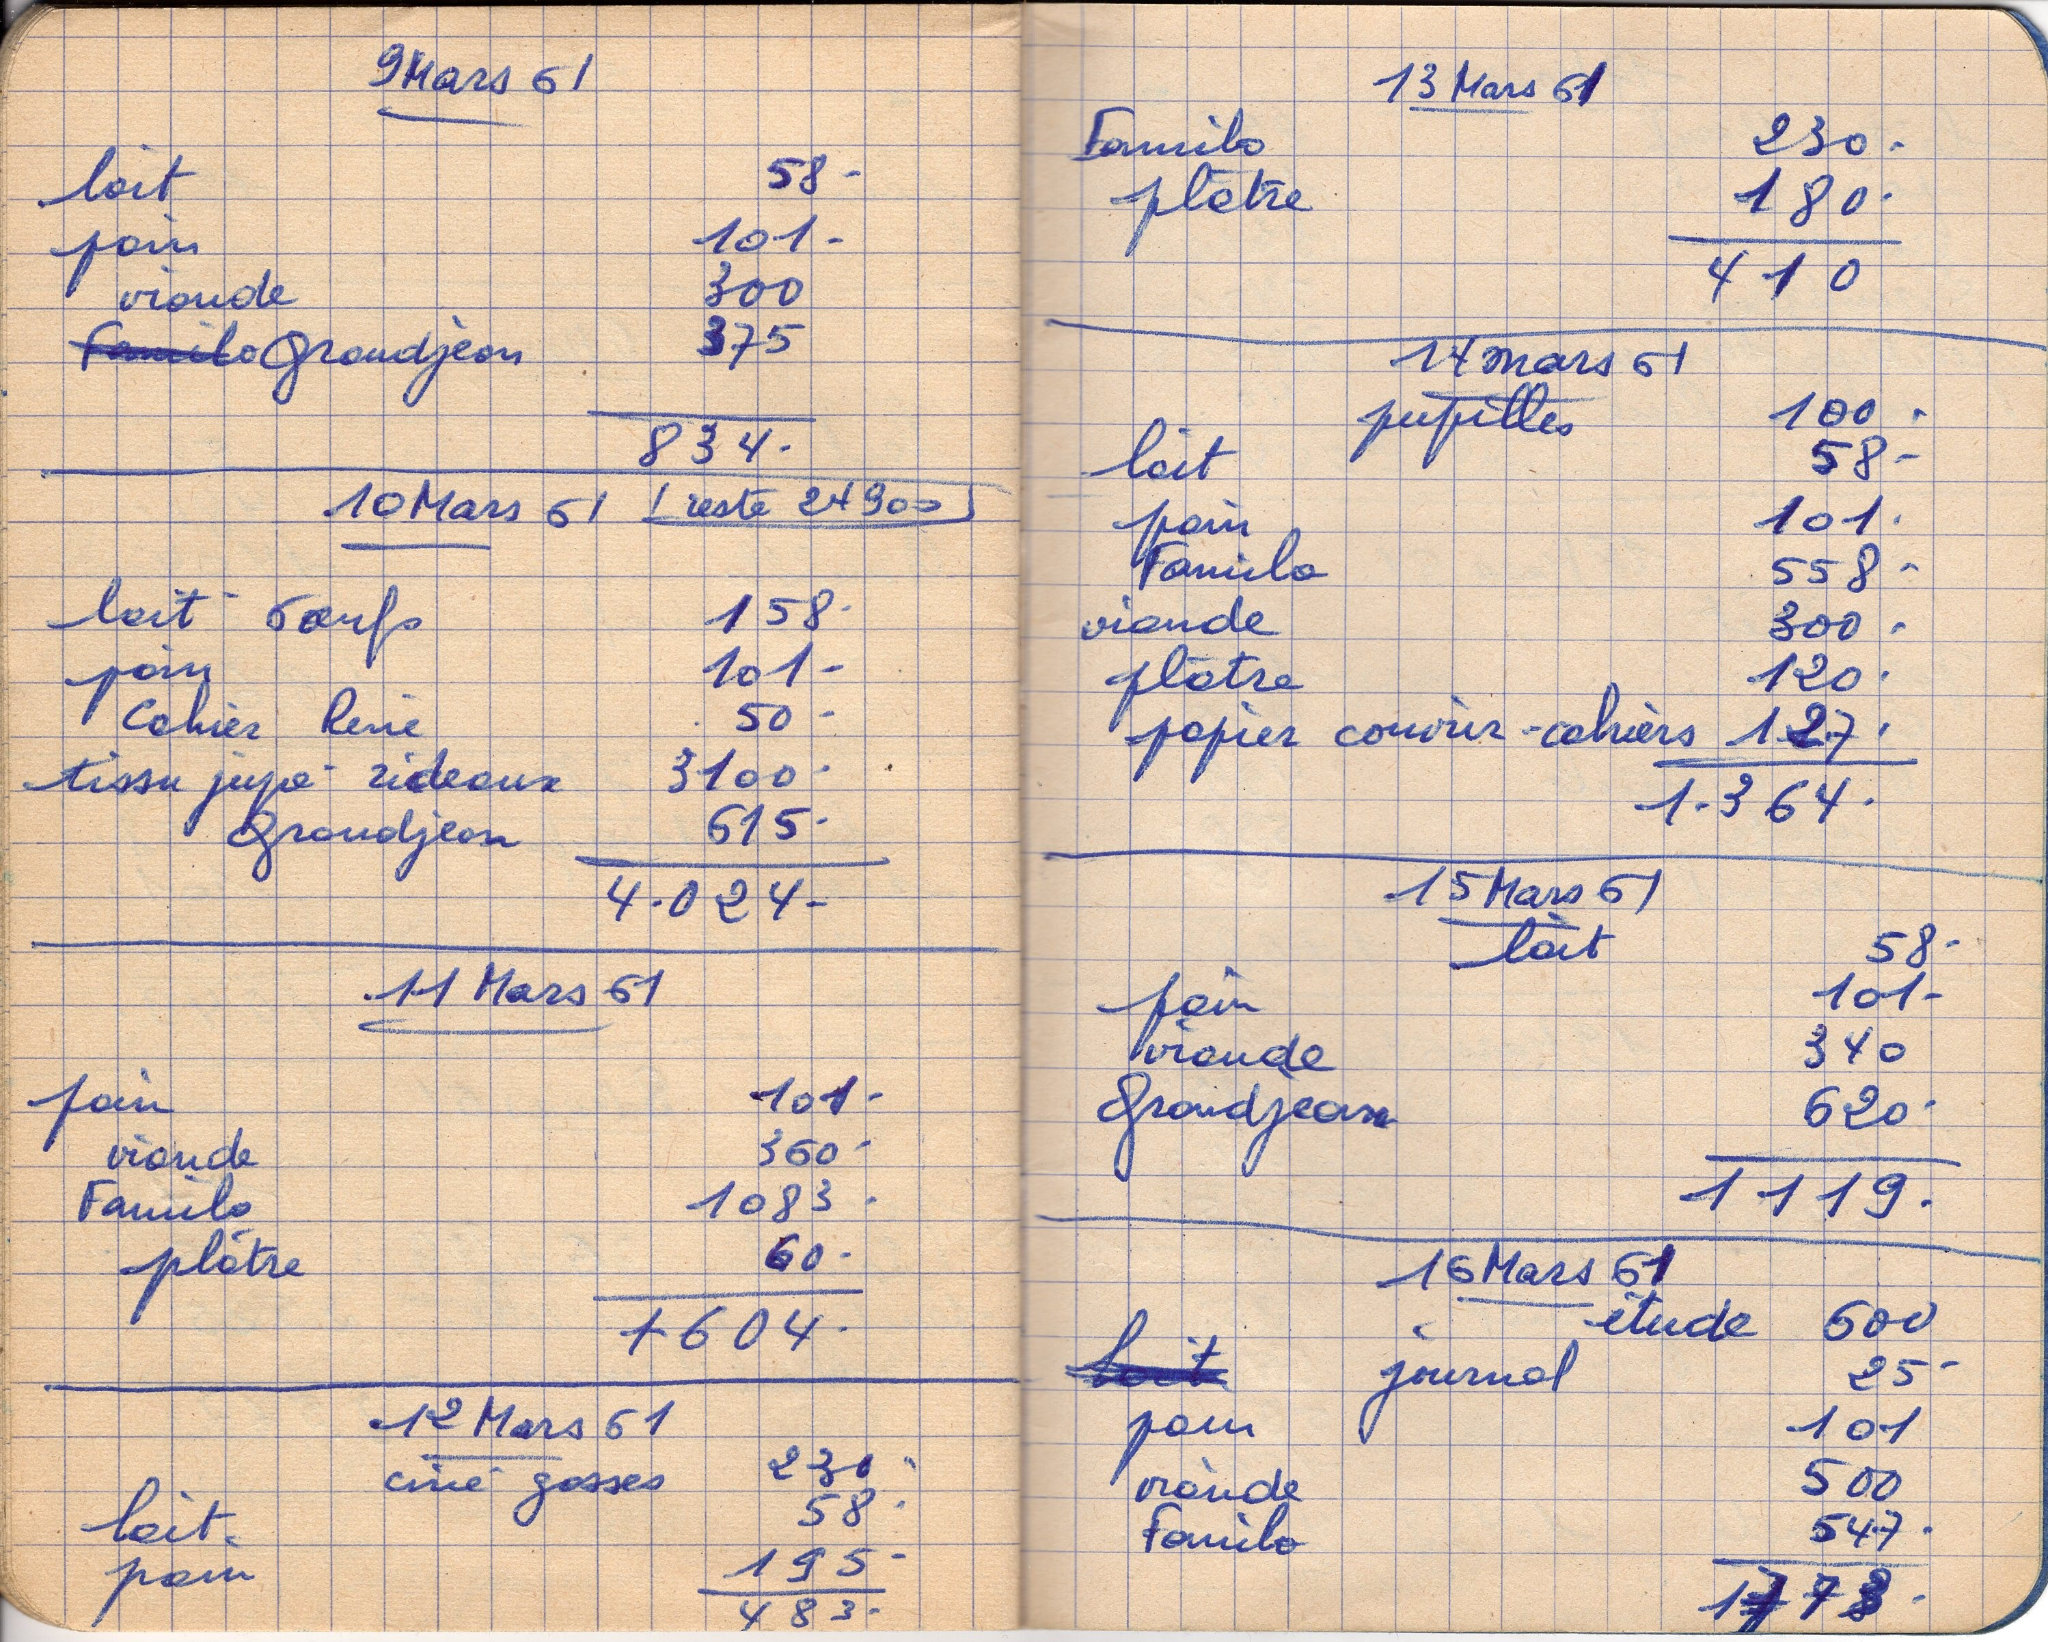 9 Mars 61
lait 58-
pain 101-
viande 300
Familo Grandjean 375
834.
10 Mars 61 (reste 24900)
lait 6 œufs 158.
pain 101-
Cahier René 50-
tissu jupe - rideaux 3100.
Grandjean 615.
4.024-
11 Mars 61
pain 101-
viande 360-
Familo 1083.
plâtre 60.
1604.
12 Mars 61
ciné gosses 230.
lait. 58.
pain 195-
483.
13 Mars 61
Familo 230.
plâtre 180.
410
14 mars 61
pupilles 100.
lait 58-
pain 101.
Familo 558-
viande 300.
plâtre 120.
papier couvrir-cahiers 127.
1.364.
15 Mars 61
lait 58-
pain 101-
viande 340
Grandjean 620.
1119.
16 Mars 61
étude 600
lait journal 25-
pain 101
viande 500
Familo 547.
1773.